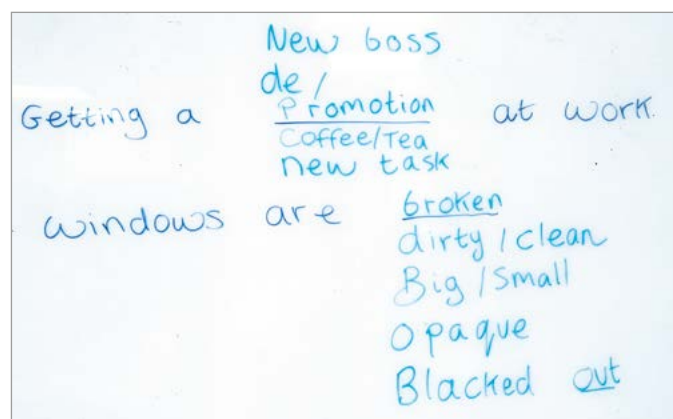 New boss
de/
Getting a Promotion at work.
Coffee/Tea
new task
windows are broken
dirty/clean
Big/Small
Opaque
Blacked out